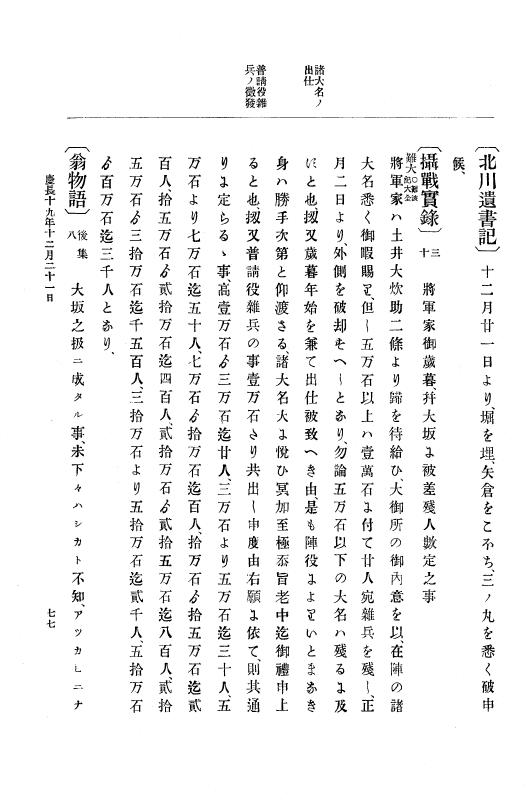 諸大名ノ
出仕
普請役雜
兵ノ徴發
〔北川遺書記〕 十二月廿一日より、堀を埋、矢倉をこぶち、三ノ丸を悉く破申
候、
〔攝戰實錄〕 三十 將軍家御歳暮、幷大坂ゟ被差殘人數定之事
○難波
難大紀大全
將軍家ハ土井大炊助二條より歸を待給ひ、大御所の御內意を以、在陣の諸
大名悉く御暇賜ㇼ、但し五万石以上ハ壹萬石ゟ付て廿人宛雜兵を殘し、正
月二日より、外側を破却せへしとあり、勿論五万石以下の大名ハ殘るゟ及
にと也、扨又歳暮年始を兼て出仕被致へき由、是も陣役ゟよㇼいとまあき
身ハ勝手次第と仰渡さる、諸大名大ゟ悅ひ冥加至極忝旨老中迄御禮申上
ると也、扨又普請役雜兵の事壹万石さり共出し申度由右願ゟ依て、則其通
りゟ定らるゝ事、高壹万石ゟ三万石迄廿人、三万石より五万石迄三十人、五
万石より七万石迄五十人、七万石ゟ拾万石迄百人、拾万石ゟ拾五万石迄貳
百人、拾五万石ゟ貳拾万石迄四百人、貳拾万石ゟ貳拾五万石迄八百人、貳拾
五万石ゟ三拾万石迄千五百人、三拾万石より五拾万石迄貳千人、五拾万石
ゟ百万石迄三千人とあり、
〔翁物語〕 後集八 大坂之扱ニ成タル事、未下々ハシカト不知、アツカヒニナ
慶長十九年十二月二十一日
七七